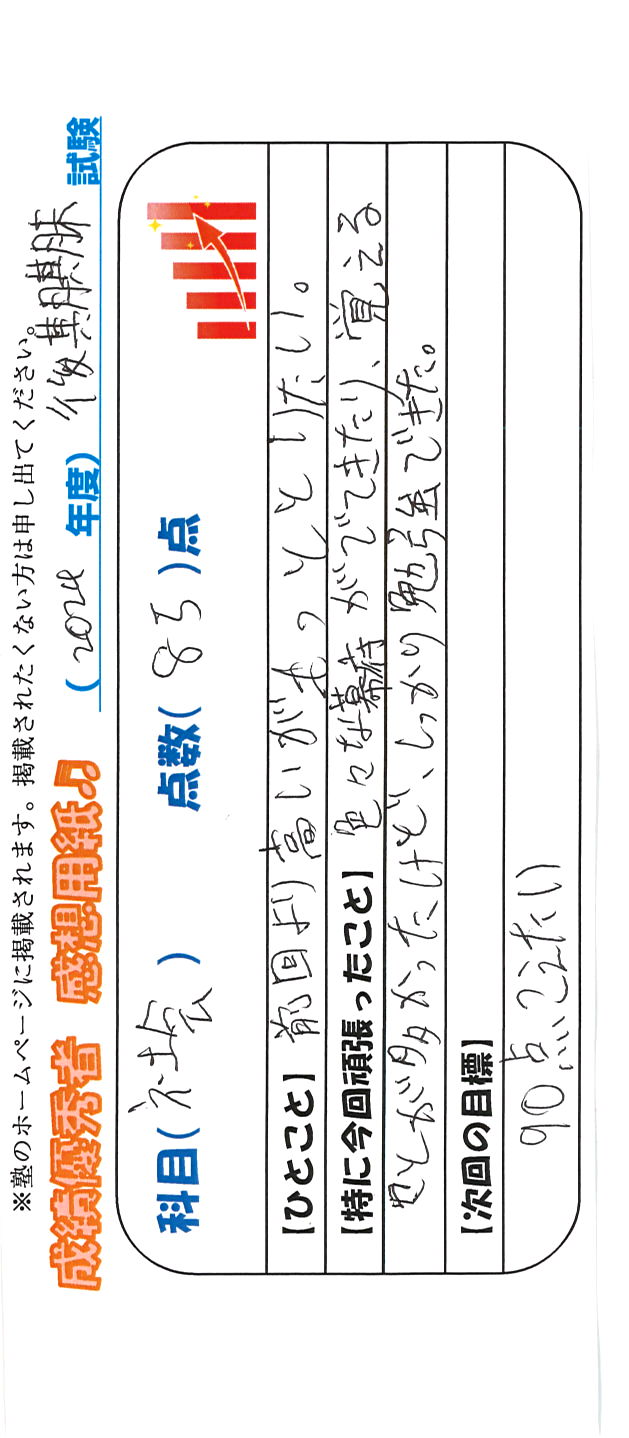 ※塾のホームページに掲載されます。掲載されたくない方は申し出てください。
成績優秀者 感想用紙♫ (2024 年度) 後期期末 試験
科目(社会) 点数(85)点
【ひとこと】前回より高いがもっととりたい。
【特に今回頑張ったこと】色々な幕府がでてきたり、覚える
ことが多かったけど、しっかり勉強できた。
【次回の目標】
90点こえたい